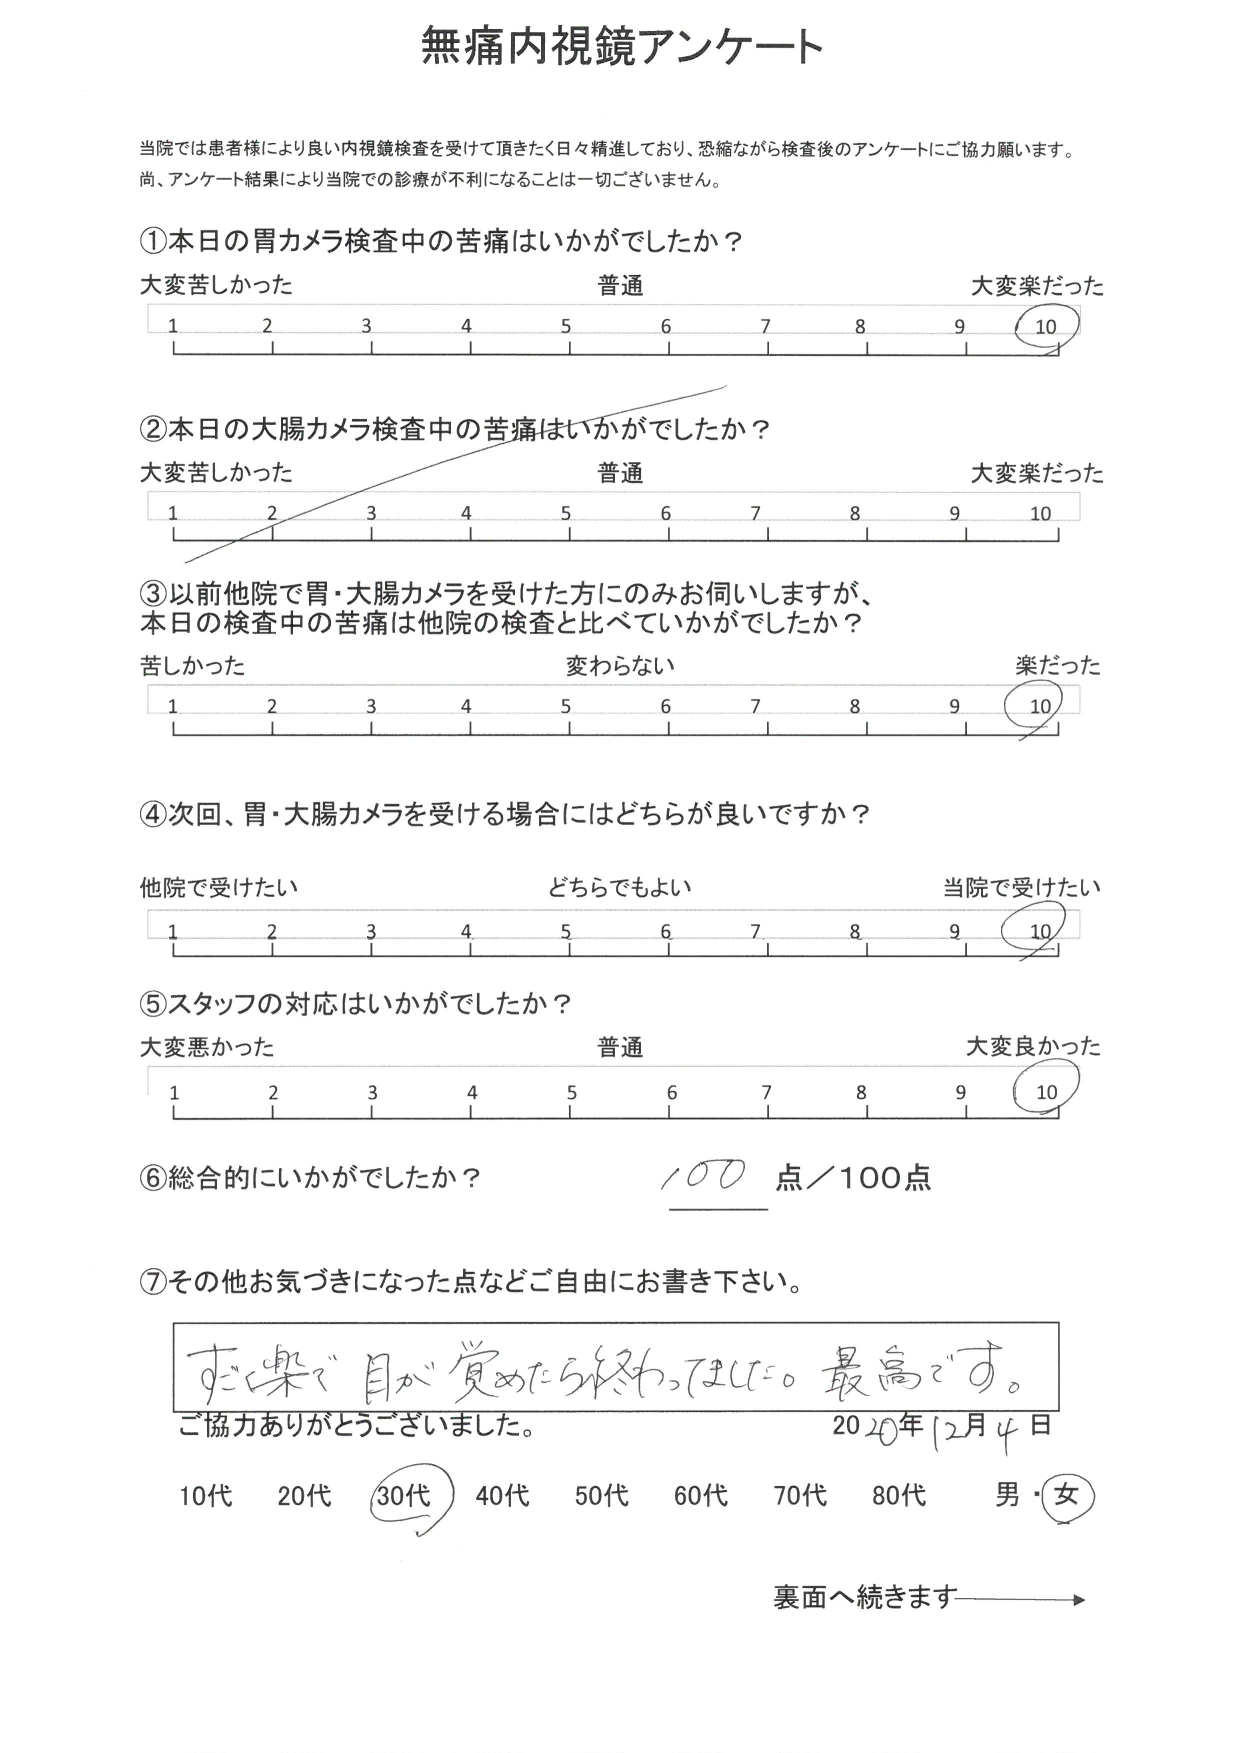 無痛内視鏡アンケート
当院では患者様により良い内視鏡検査を受けて頂きたく日々精進しており、恐縮ながら検査後のアンケートにご協力願います。
尚、アンケート結果により当院での診療が不利になることは一切ございません。
①本日の胃カメラ検査中の苦痛はいかがでしたか？
大変苦しかった 普通 大変楽だった
1 2 3 4 5 6 7 8 9 10
②本日の大腸カメラ検査中の苦痛はいかがでしたか？
大変苦しかった 普通 大変楽だった
1 2 3 4 5 6 7 8 9 10
③以前他院で胃・大腸カメラを受けた方にのみお伺いしますが、
本日の検査中の苦痛は他院の検査と比べていかがでしたか？
苦しかった 変わらない 楽だった
1 2 3 4 5 6 7 8 9 10
④次回、胃・大腸カメラを受ける場合にはどちらが良いですか？
他院で受けたい どちらでもよい 当院で受けたい
1 2 3 4 5 6 7 8 9 10
⑤スタッフの対応はいかがでしたか？
大変悪かった 普通 大変良かった
1 2 3 4 5 6 7 8 9 10
⑥総合的にいかがでしたか？ 100 点／100点
⑦その他お気づきになった点などご自由にお書き下さい。
すごく楽で 目が覚めたら終わってました。最高です。
ご協力ありがとうございました。 2020年12月4日
10代 20代 30代 40代 50代 60代 70代 80代 男・女
裏面へ続きます